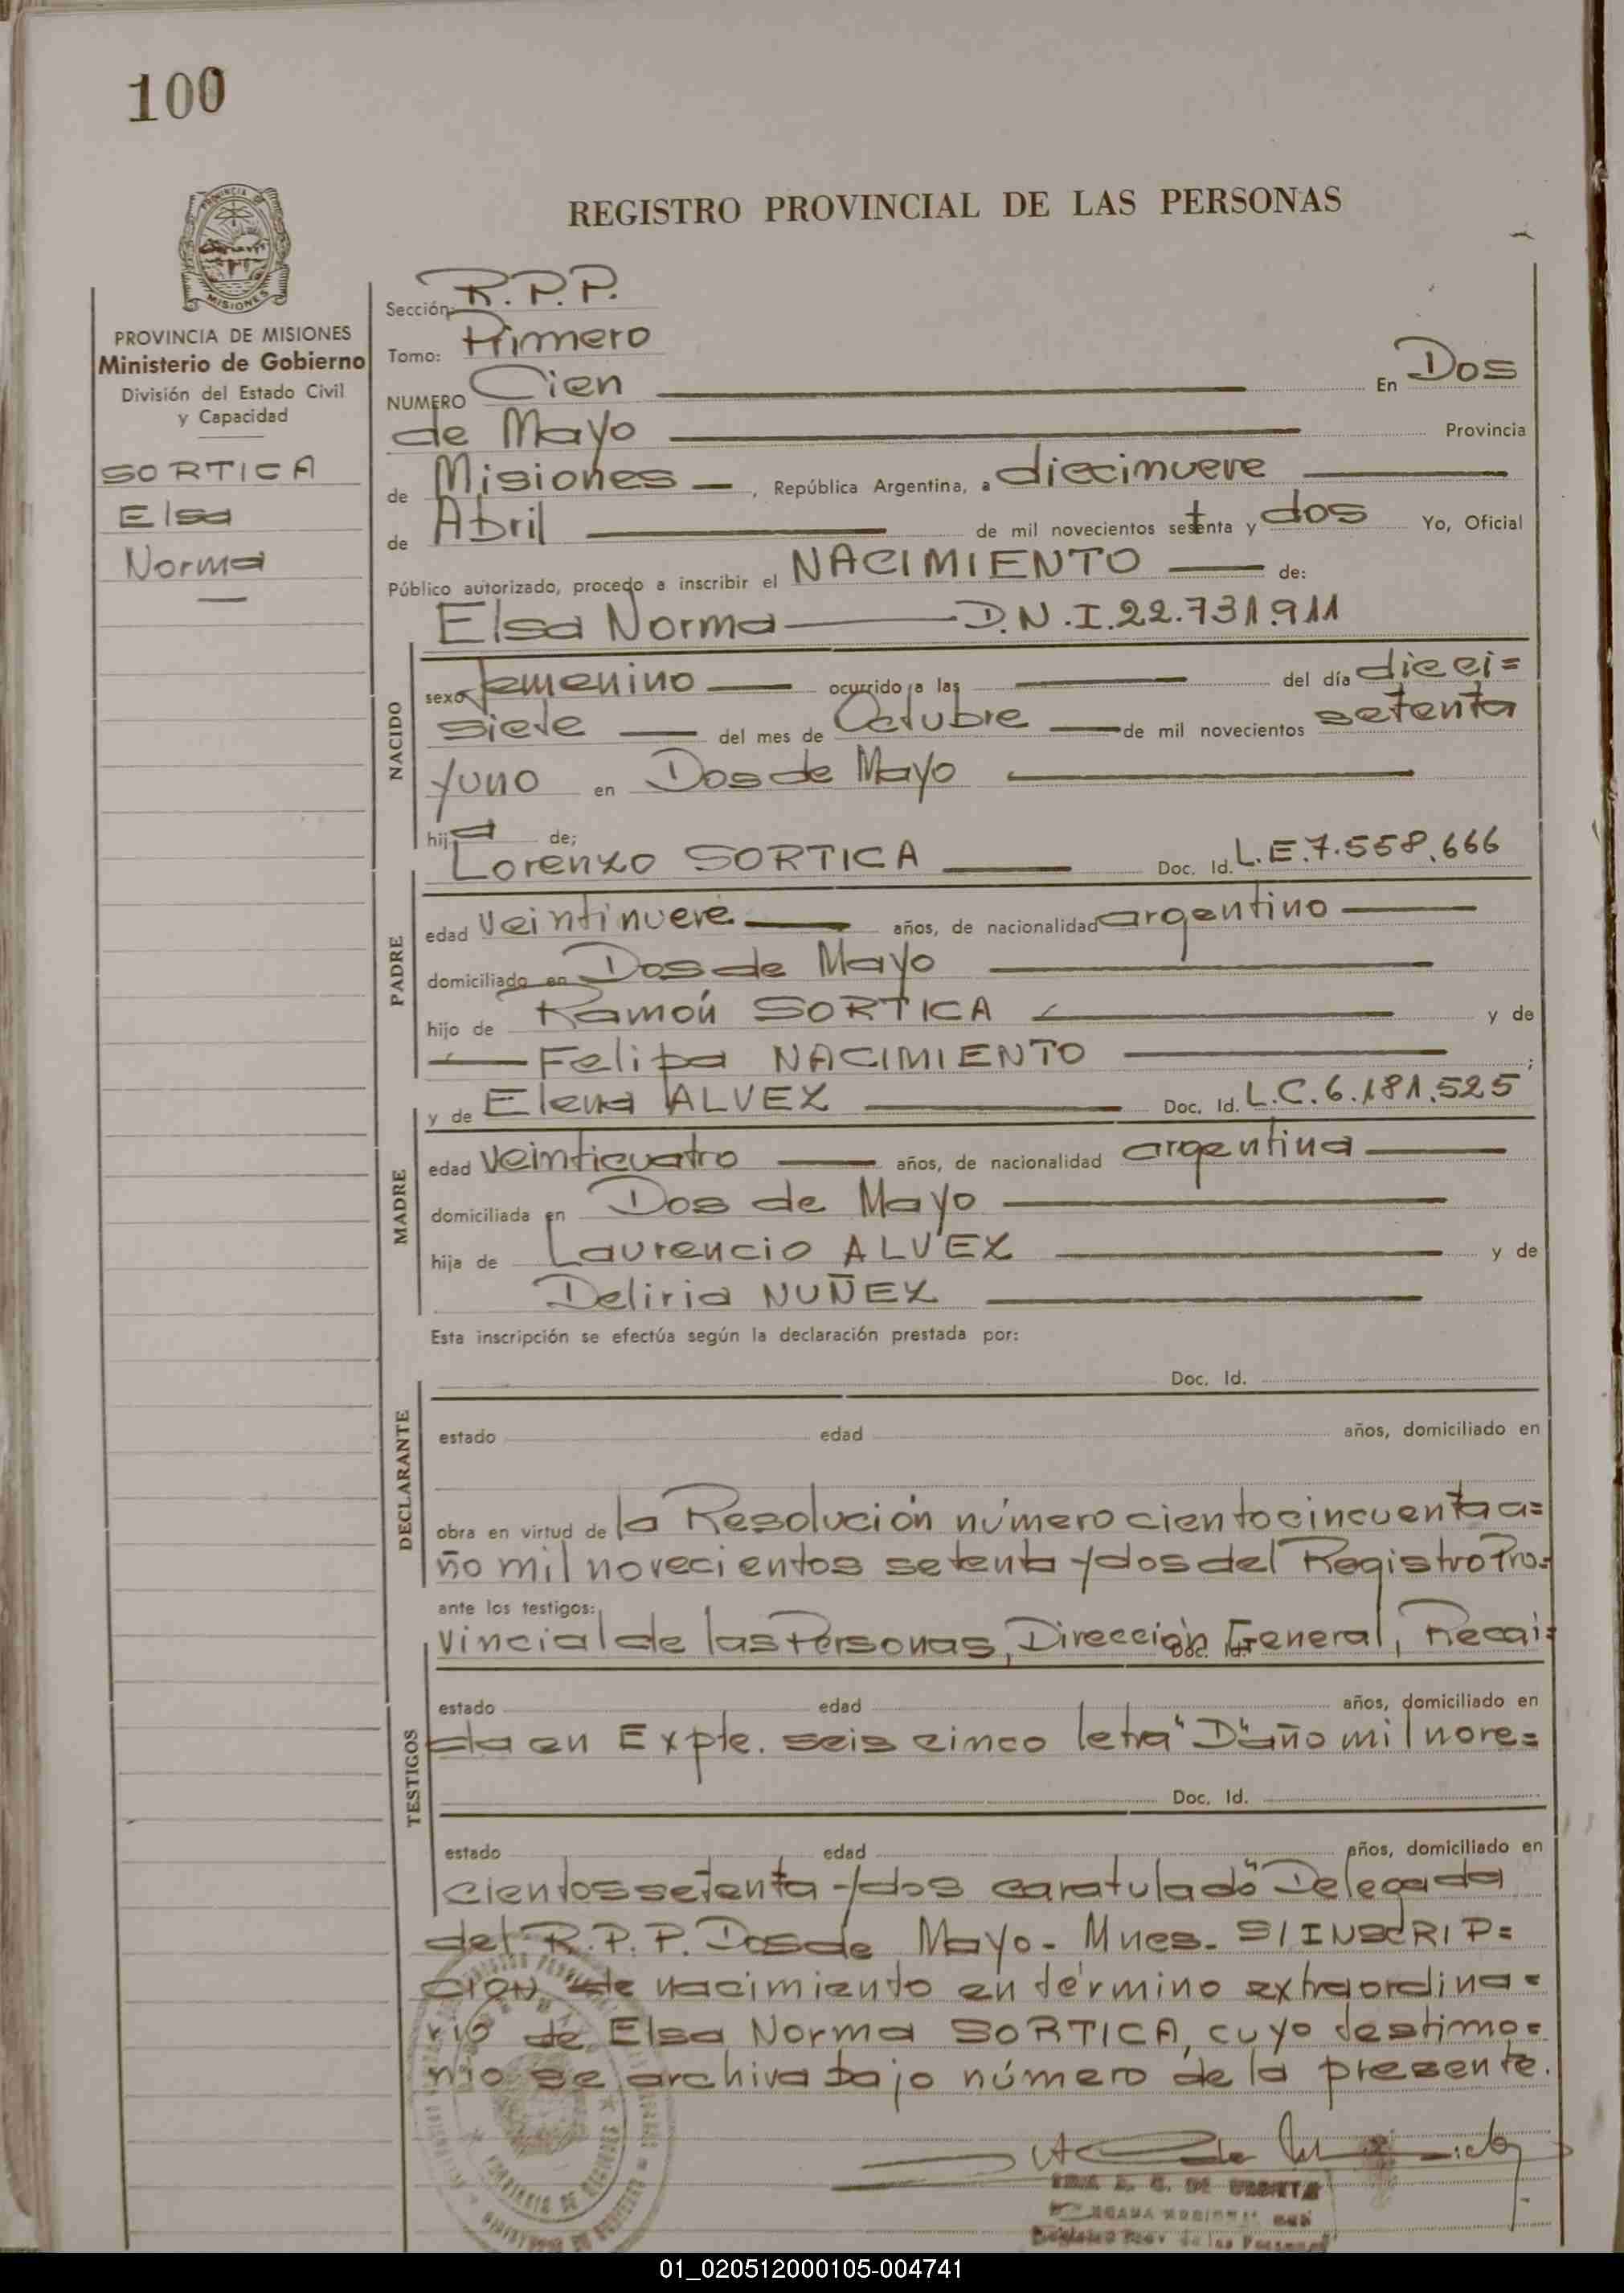 100
REGISTRO PROVINCIAL DE LAS PERSONAS
PROVINCIA
MISIONES
PROVINCIA DE MISIONES
Ministerio de Gobierno
División del Estado Civil
y Capacidad
SORTICA
Elsa
Norma
Sección: R.P.P.
Tomo: Primero
NUMERO Cien En Dos
de Mayo Provincia
de Misiones, República Argentina, a diecinueve
de Abril de mil novecientos setenta y dos Yo, Oficial
Público autorizado, procedo a inscribir el NACIMIENTO de:
Elsa Norma D.N.I.22.731.911
NACIDO
sexo femenino ocurrido a las del día dieci=
siete del mes de Octubre de mil novecientos setenta
y uno en Dos de Mayo
hija de;
Lorenzo SORTICA Doc. Id. L.E.7.558.666
PADRE
edad veintinueve años, de nacionalidad argentino
domiciliado en Dos de Mayo
hijo de Ramón SORTICA y de
Felipa NACIMIENTO ;
y de Elena ALVEZ Doc. Id. L.C.6.181.525
MADRE
edad veinticuatro años, de nacionalidad argentina
domiciliada en Dos de Mayo
hija de Laurencio ALVEZ y de
Deliria NUÑEZ
Esta inscripción se efectúa según la declaración prestada por:
Doc. Id.
DECLARANTE
estado edad años, domiciliado en
obra en virtud de la Resolución número ciento cincuenta a=
ño mil novecientos setenta y dos del Registro Pro=
ante los testigos:
vincial de las Personas, Dirección General, Recai=
Doc. Id.
TESTIGOS
estado edad años, domiciliado en
da en Expte. seis cinco letra "D" año mil nove=
Doc. Id.
estado edad años, domiciliado en
cientos setenta y dos caratulado "Delegada
del R.P.P. Dos de Mayo - Mnes. S/INSCRIP=
CION de nacimiento en término extraordina=
rio de Elsa Norma SORTICA, cuyo testimo=
nio se archiva bajo número de la presente.
01_020512000105-004741